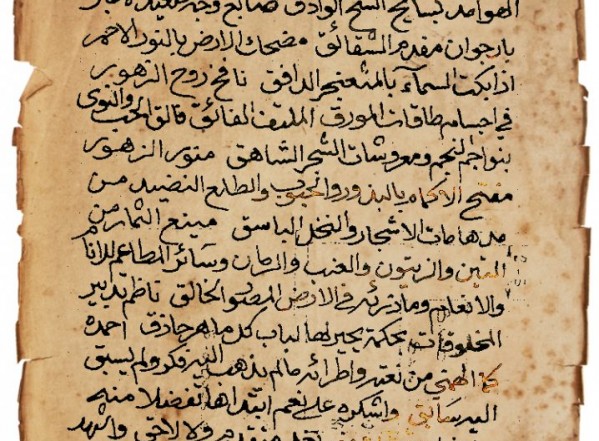 الهوامد بسايح السح الوادق صانع وجه
بارجوان مقدم الشقائق مضحك الارض بالنور الاحمر
اذا بكت السماء بالمثعنجر الدافق نافخ روح الزهور
في اجسام طاقات المورق الملتف الفائق فالق الحب والنوى
بنواجم النجم ومعروشات الشجر الشاهق منور الزهور
مفتح الاكمام بالبذور والحبوب والطلع النضيد من
مدهامات الاشجار والنخل الباسق مينع الثمار من
التين والزيتون والعنب والرمان وسائر المطاعم للانام
والانعام وما ذرئه في الارض المصور الخالق ناظم تدبير
المخلوقات بحكمة يحير لها الباب كل ماهر حاذق احمده
كما الهمني من نعته واطرائه مالم يذهب اليه فكر ولم يسبق
اليه سابق واشكره على نعم ابتداها تفضلا منه
متقدم ولا لاحق واشهد